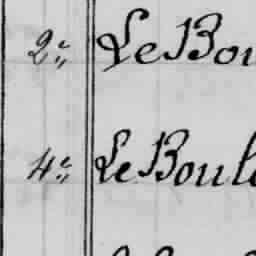 2.e LeBou
4.e LeBoul